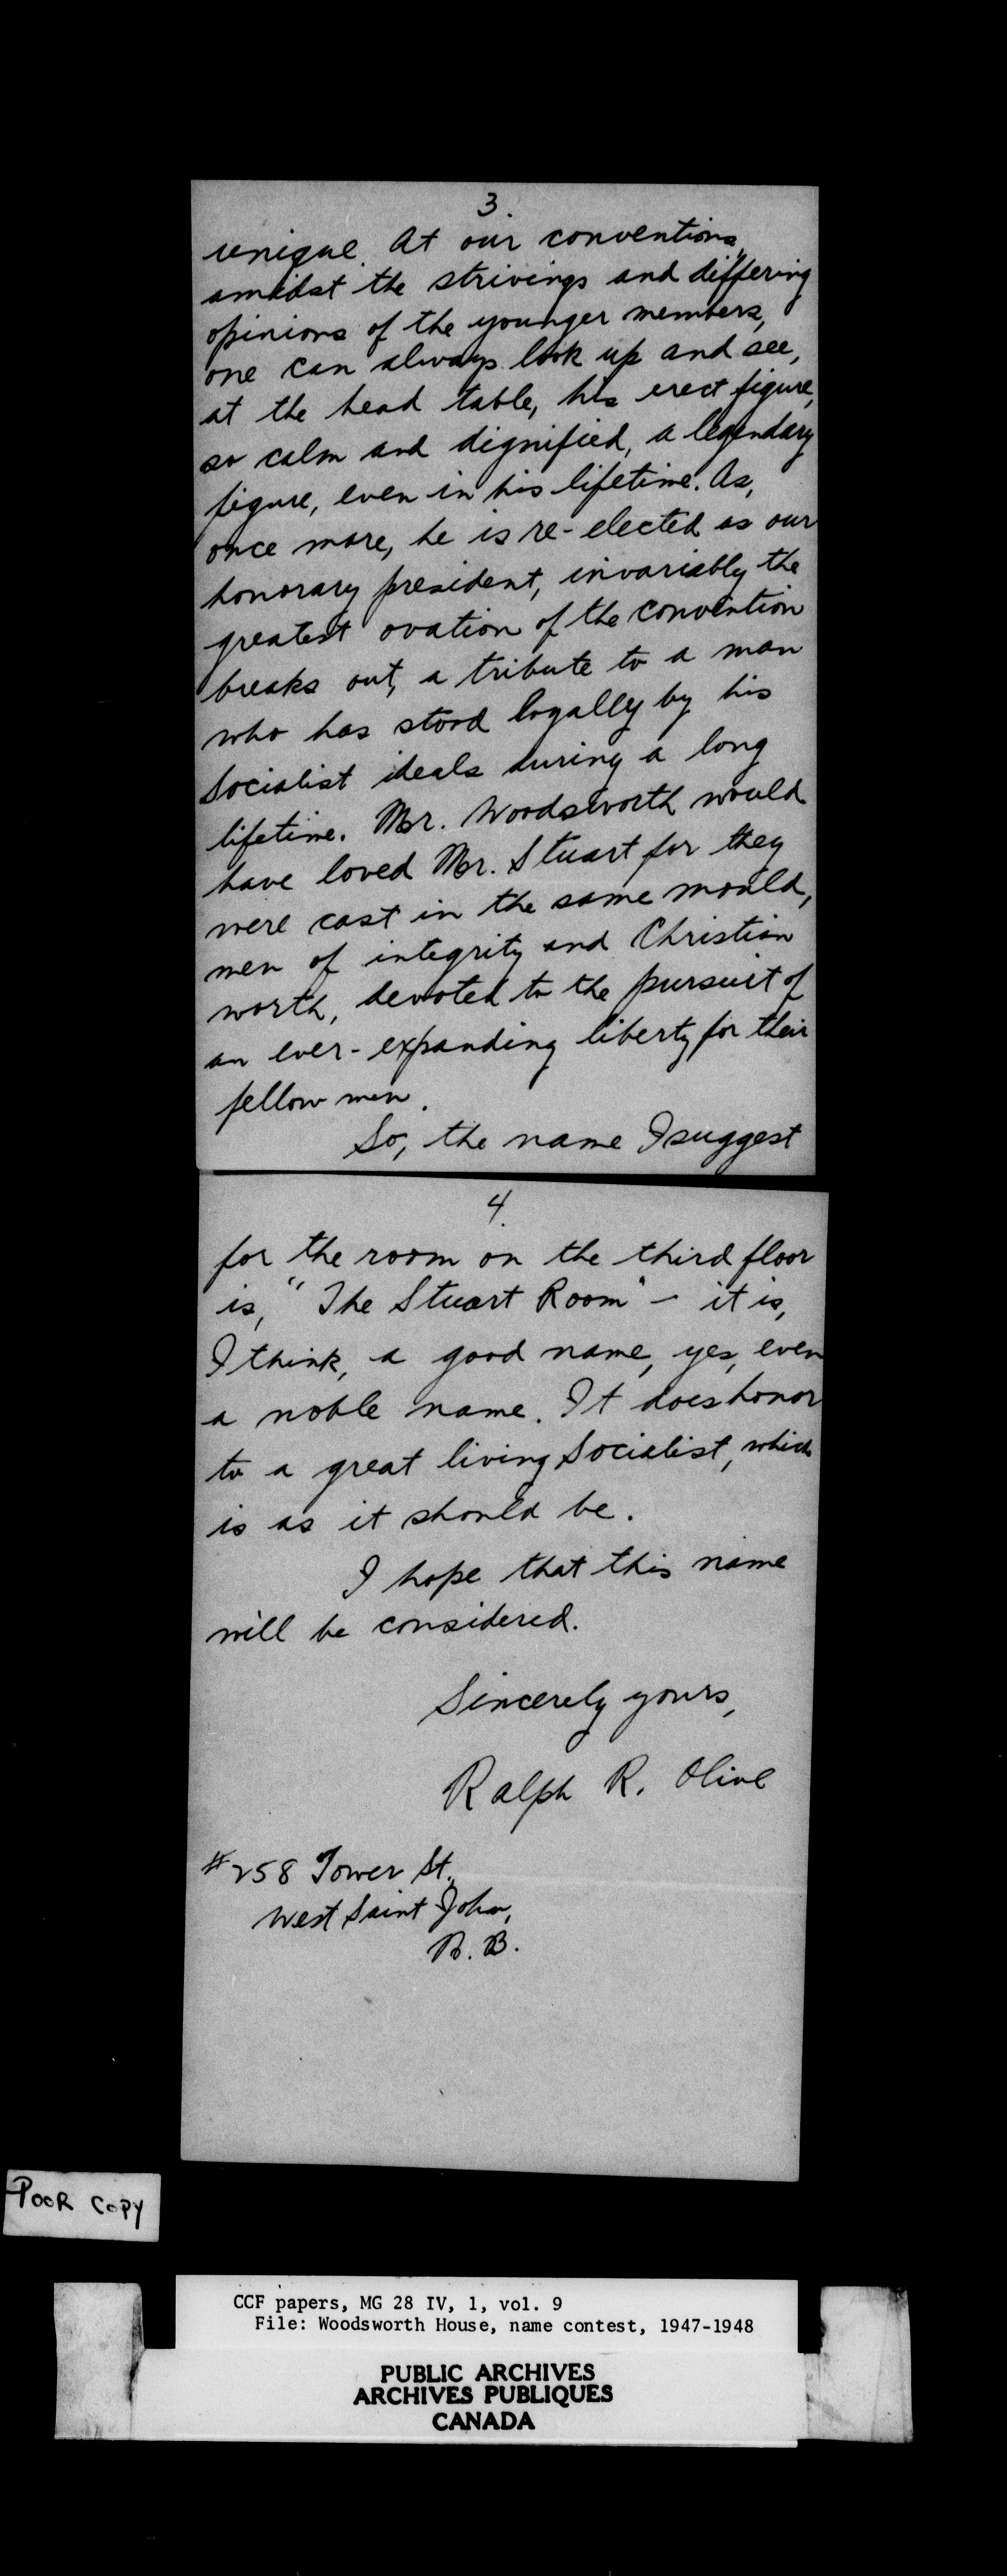 3.
unique. At our conventions,
amidst the strivings and differing
opinions of the younger members,
one can always look up and see,
at the head table, his erect figure,
so calm and dignified, a legendary
figure, even in his lifetime. As,
once more, he is re-elected as our
honorary president, invariably the
greatest ovation of the convention
breaks out, a tribute to a man
who has stood loyally by his
Socialist ideals during a long
lifetime. Mr. Woodsworth would
have loved Mr. Stuart for they
were cast in the same mould,
men of integrity and Christian
worth, devoted to the pursuit of
an ever-expanding liberty for their
fellow men.
So, the name I suggest
4.
for the room on the third floor
is, "The Stuart Room" - it is,
I think, a good name, yes, even
a noble name. It does honor
to a great living Socialist, which
is as it should be.
I hope that this name
will be considered.
Sincerely yours,
Ralph R. Olive
#258 Tower St.,
West Saint John,
N. B.
POOR COPY
CCF papers, MG 28 IV, 1, vol. 9
File: Woodsworth House, name contest, 1947-1948
PUBLIC ARCHIVES
ARCHIVES PUBLIQUES
CANADA